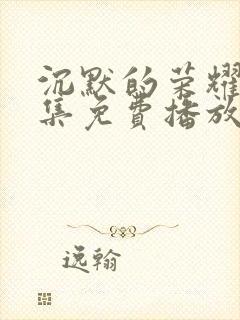 沉默的荣耀
集免费播放
逸翰